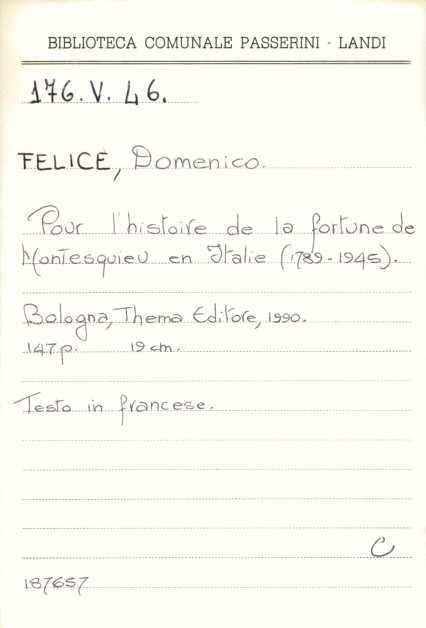 BIBLIOTECA COMUNALE PASSERINI - LANDI
176.V.46.
FELICE, Domenico.
Pour l'histoire de la fortune de
Montesquieu en Italie (1789-1945).
Bologna, Thema Editore, 1990.
147 p. 19 cm.
Testo in francese.
C
187657